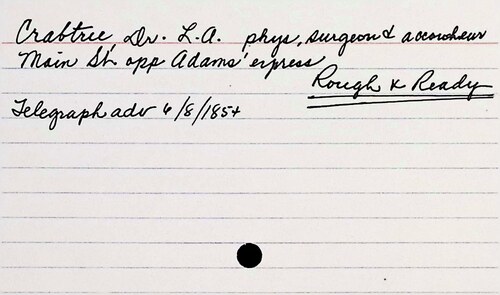 Crabtree, Dr. L.A. phys, surgeon & accoucheur
Main St. opp Adams' express
Rough & Ready
Telegraph adv 6/8/1854